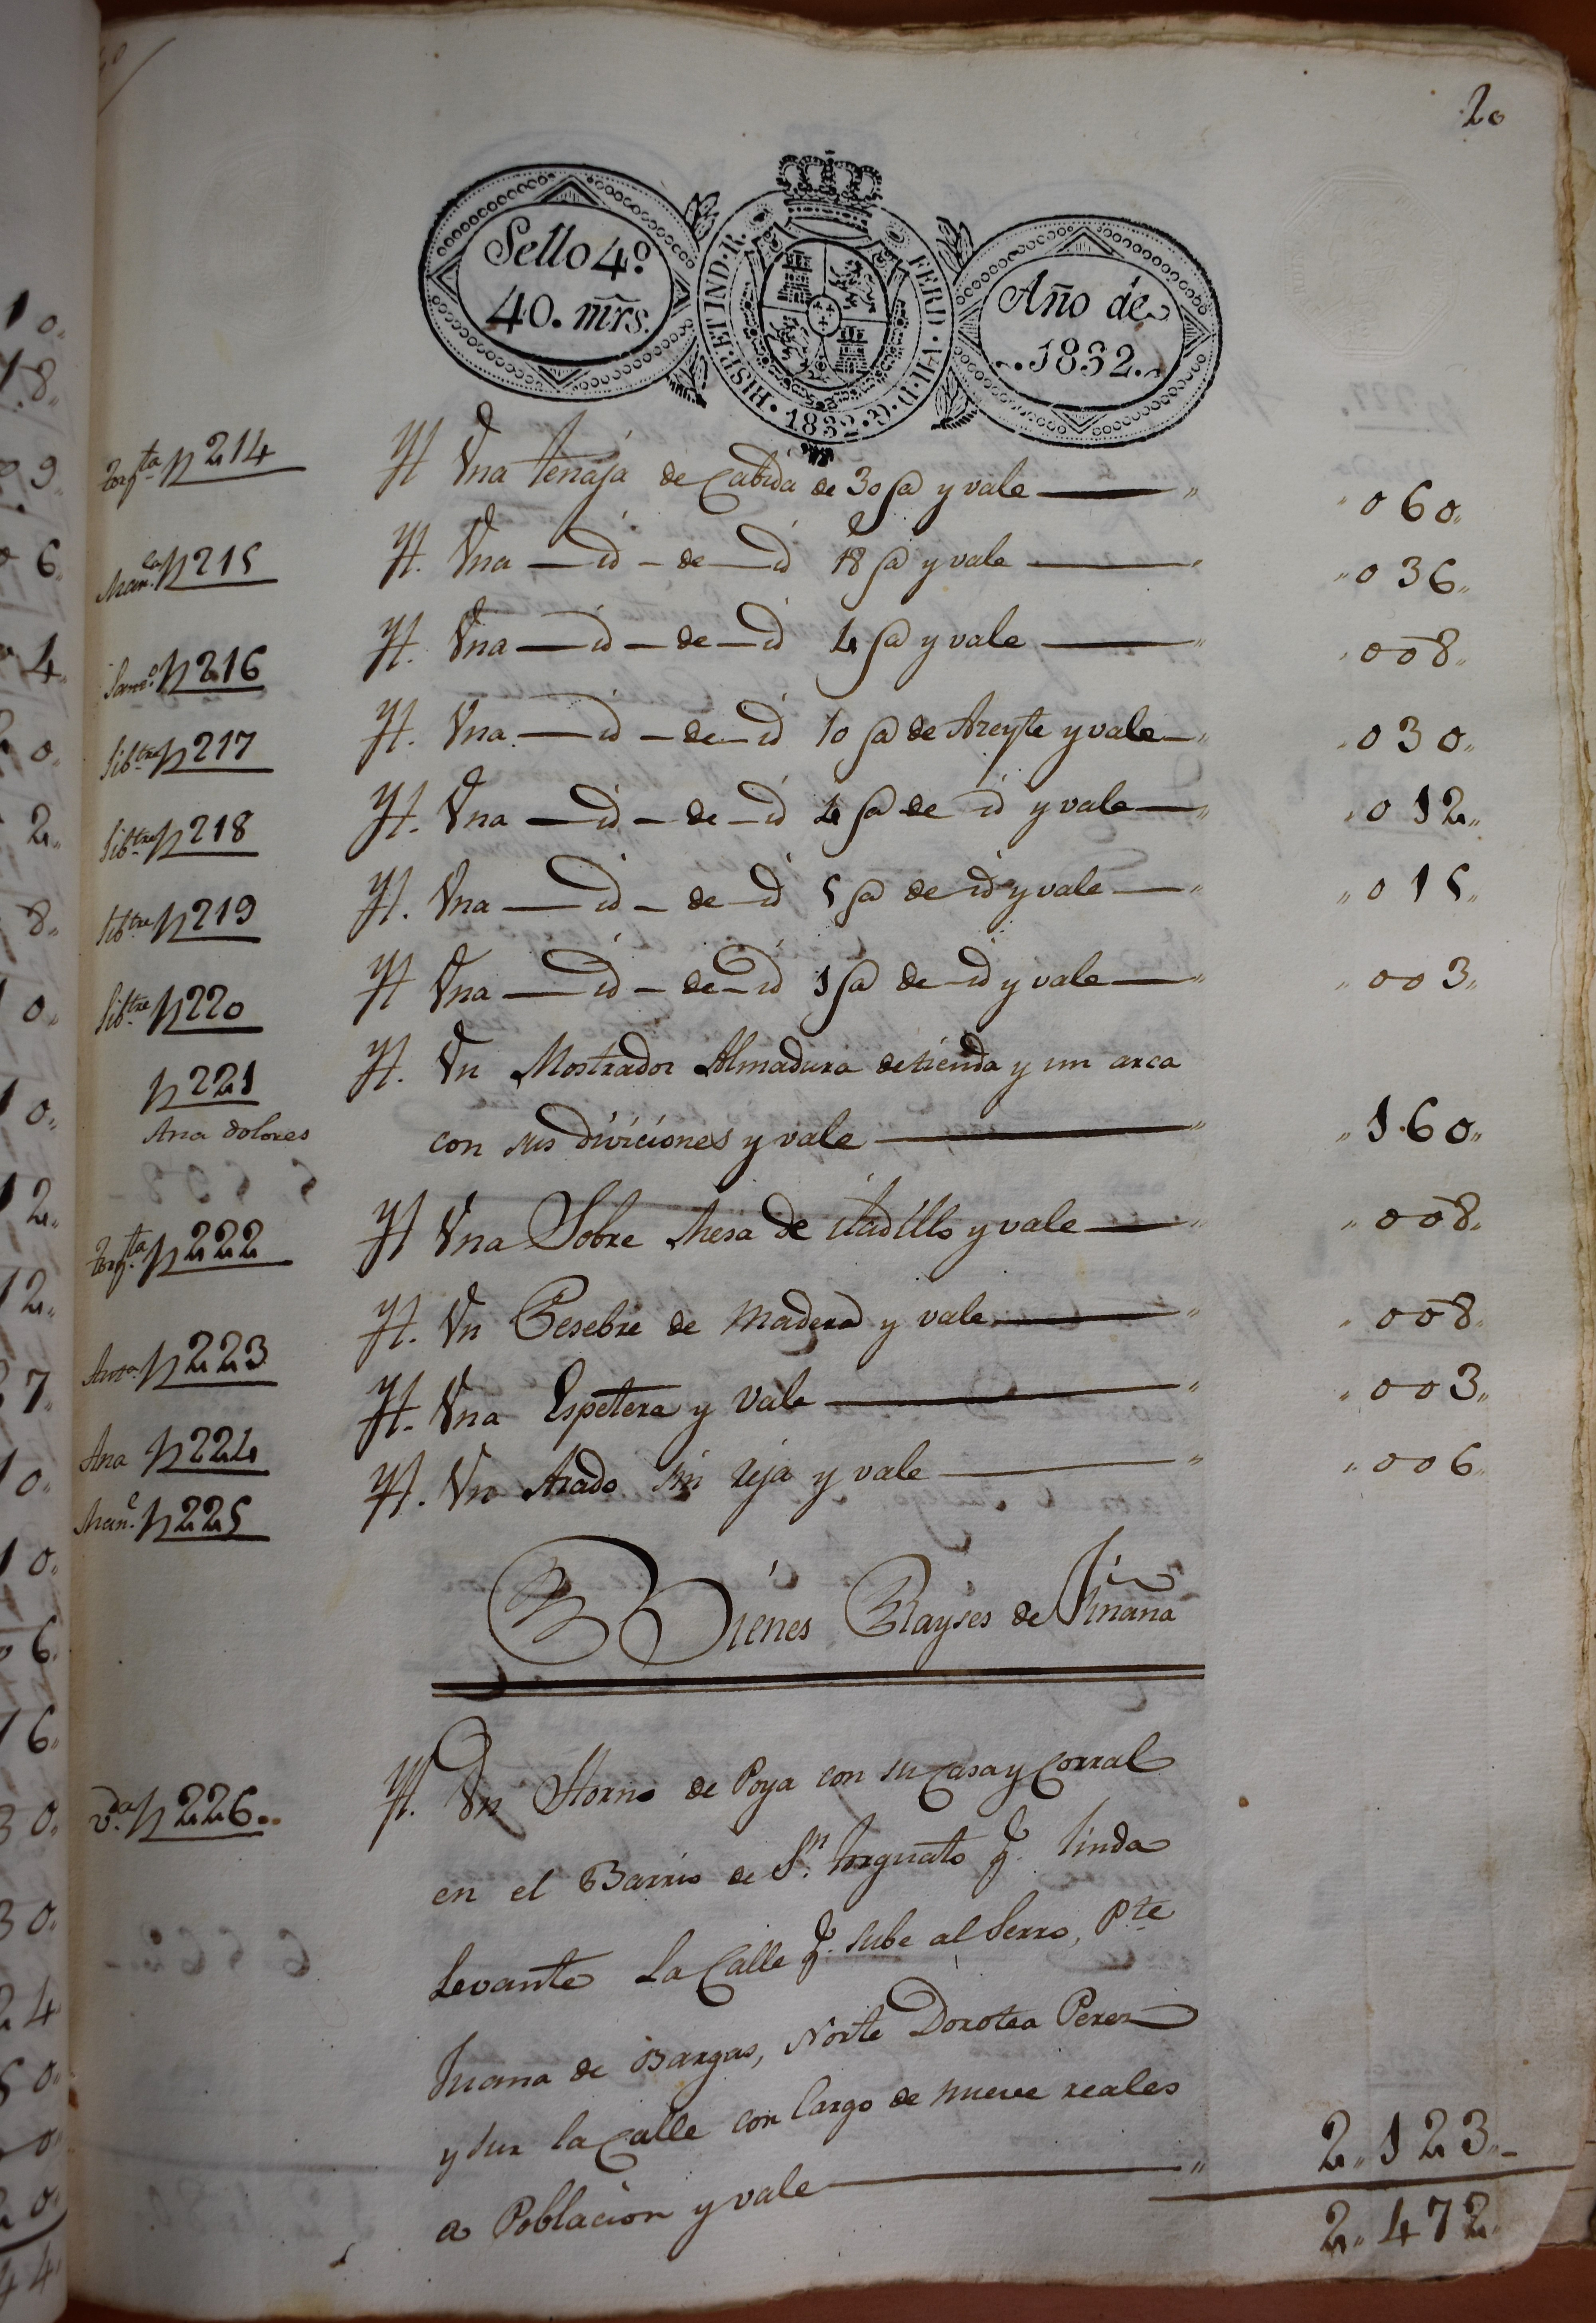 20
Sello 4º
40. mrs.
HISP. ET IND. R. FERD. VII. D. G. 1832.
Año de
1832.
Torqta N 214 Yt Una tenaja de Cabida de 30 @ y vale " 060"
Man.la N 215 Yt. Una — id — de — id 18 @ y vale " 036"
N 216 Yt. Una — id — de — id 4 @ y vale " 008"
N 217 Yt. Una — id — de — id 10 @ de Azeyte y vale " 030"
N 218 Yt. Una — id — de — id 4 @ de id y vale " 012"
N 219 Yt. Una — id — de — id 5 @ de id y vale " 015"
N 220 Yt Una — id — de — id 1 @ de id y vale " 003"
N 221 Yt. Un Mostrador Almadura de tienda y un arca
Ana dolores con sus diviciones y vale " 160"
Torqta N 222 Yt Una Sobre Mesa de iladillo y vale " 008"
Anta N 223 Yt. Un Pesebre de Madera y vale " 008"
Ana N 224 Yt. Una Espetera y Vale " 003"
Man.l N 225 Yt. Un Arado sin reja y vale " 006"
Bienes Rayses de Fiñana
V.da N 226 Yt. Un Horno de Poya con su Casa y Corral
en el Barrio de Sn. Torquato q. linda
Levante La Calle q. sube al Serro, Pte
Juana de Bargas, Norte Dorotea Perez
y sur la Calle con Cargo de nueve reales
a Poblacion y vale " 2"123"
2"472"